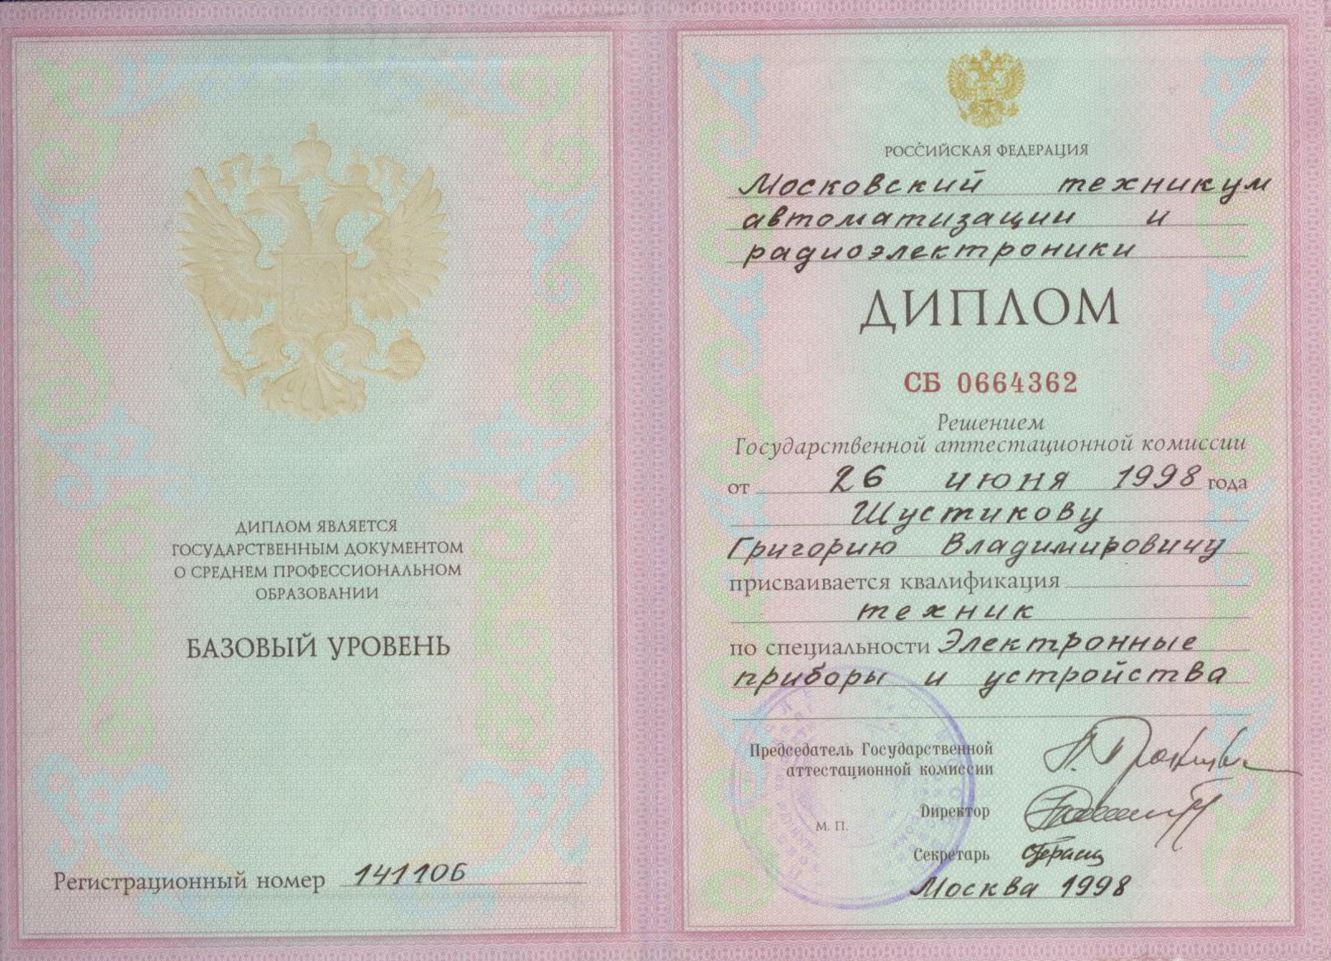 ДИПЛОМ ЯВЛЯЕТСЯ
ГОСУДАРСТВЕННЫМ ДОКУМЕНТОМ
О СРЕДНЕМ ПРОФЕССИОНАЛЬНОМ
ОБРАЗОВАНИИ
БАЗОВЫЙ УРОВЕНЬ
Регистрационный номер 141106
РОССИЙСКАЯ ФЕДЕРАЦИЯ
Московский техникум
автоматизации и
радиоэлектроники
ДИПЛОМ
СБ 0664362
Решением
Государственной аттестационной комиссии
от 26 июня 1998 года
Шустикову
Григорию Владимировичу
присваивается квалификация
техник
по специальности Электронные
приборы и устройства
Председатель Государственной
аттестационной комиссии
Директор
М. П.
Секретарь
Москва 1998